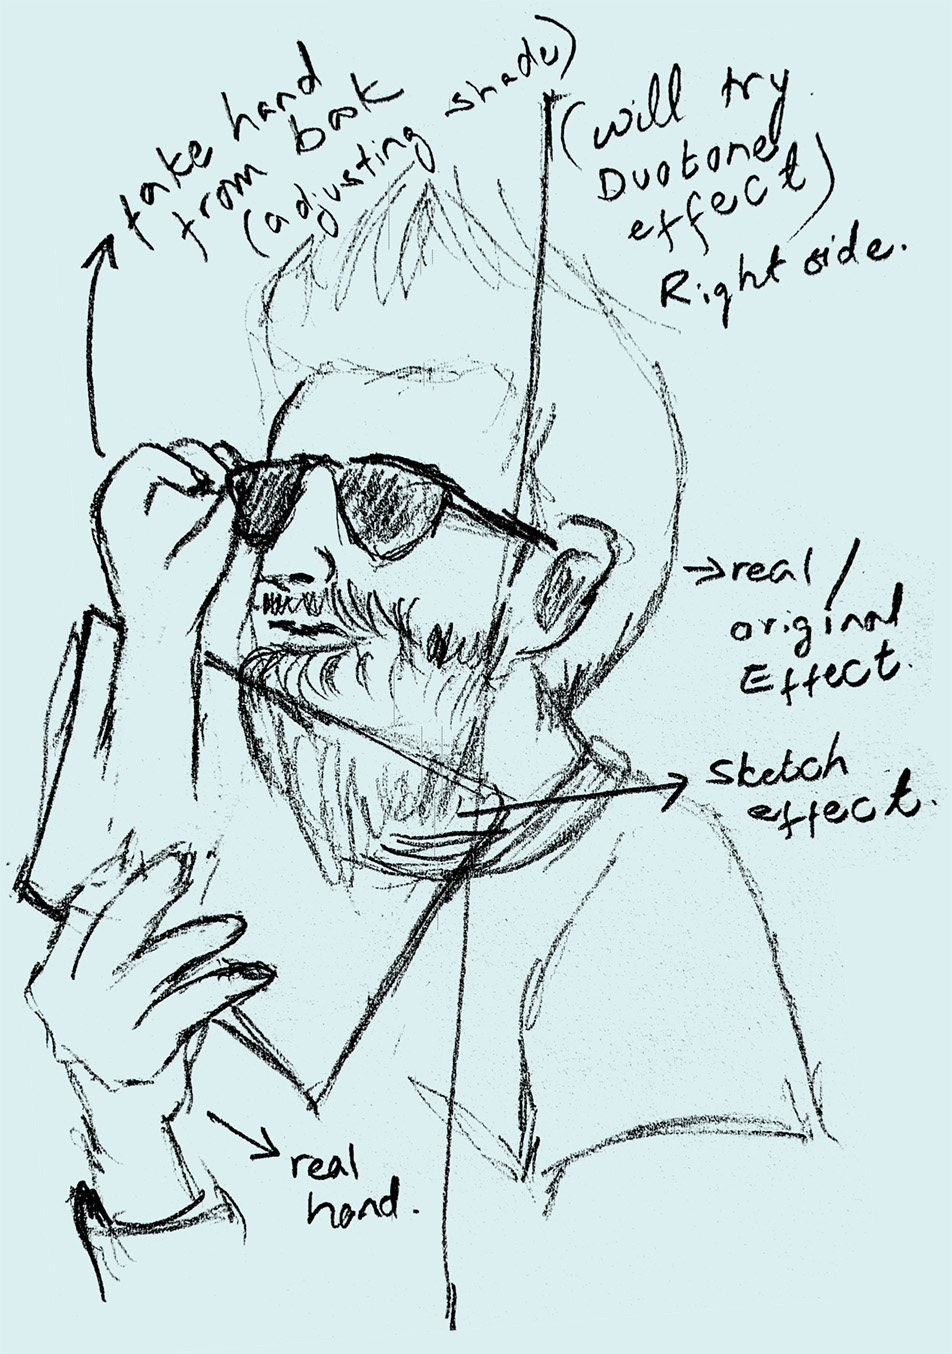 take hand
from book
(adjusting shade)
(will try
Duotone
effect)
Right side.
→real /
original
Effect.
sketch
effect.
real
hand.